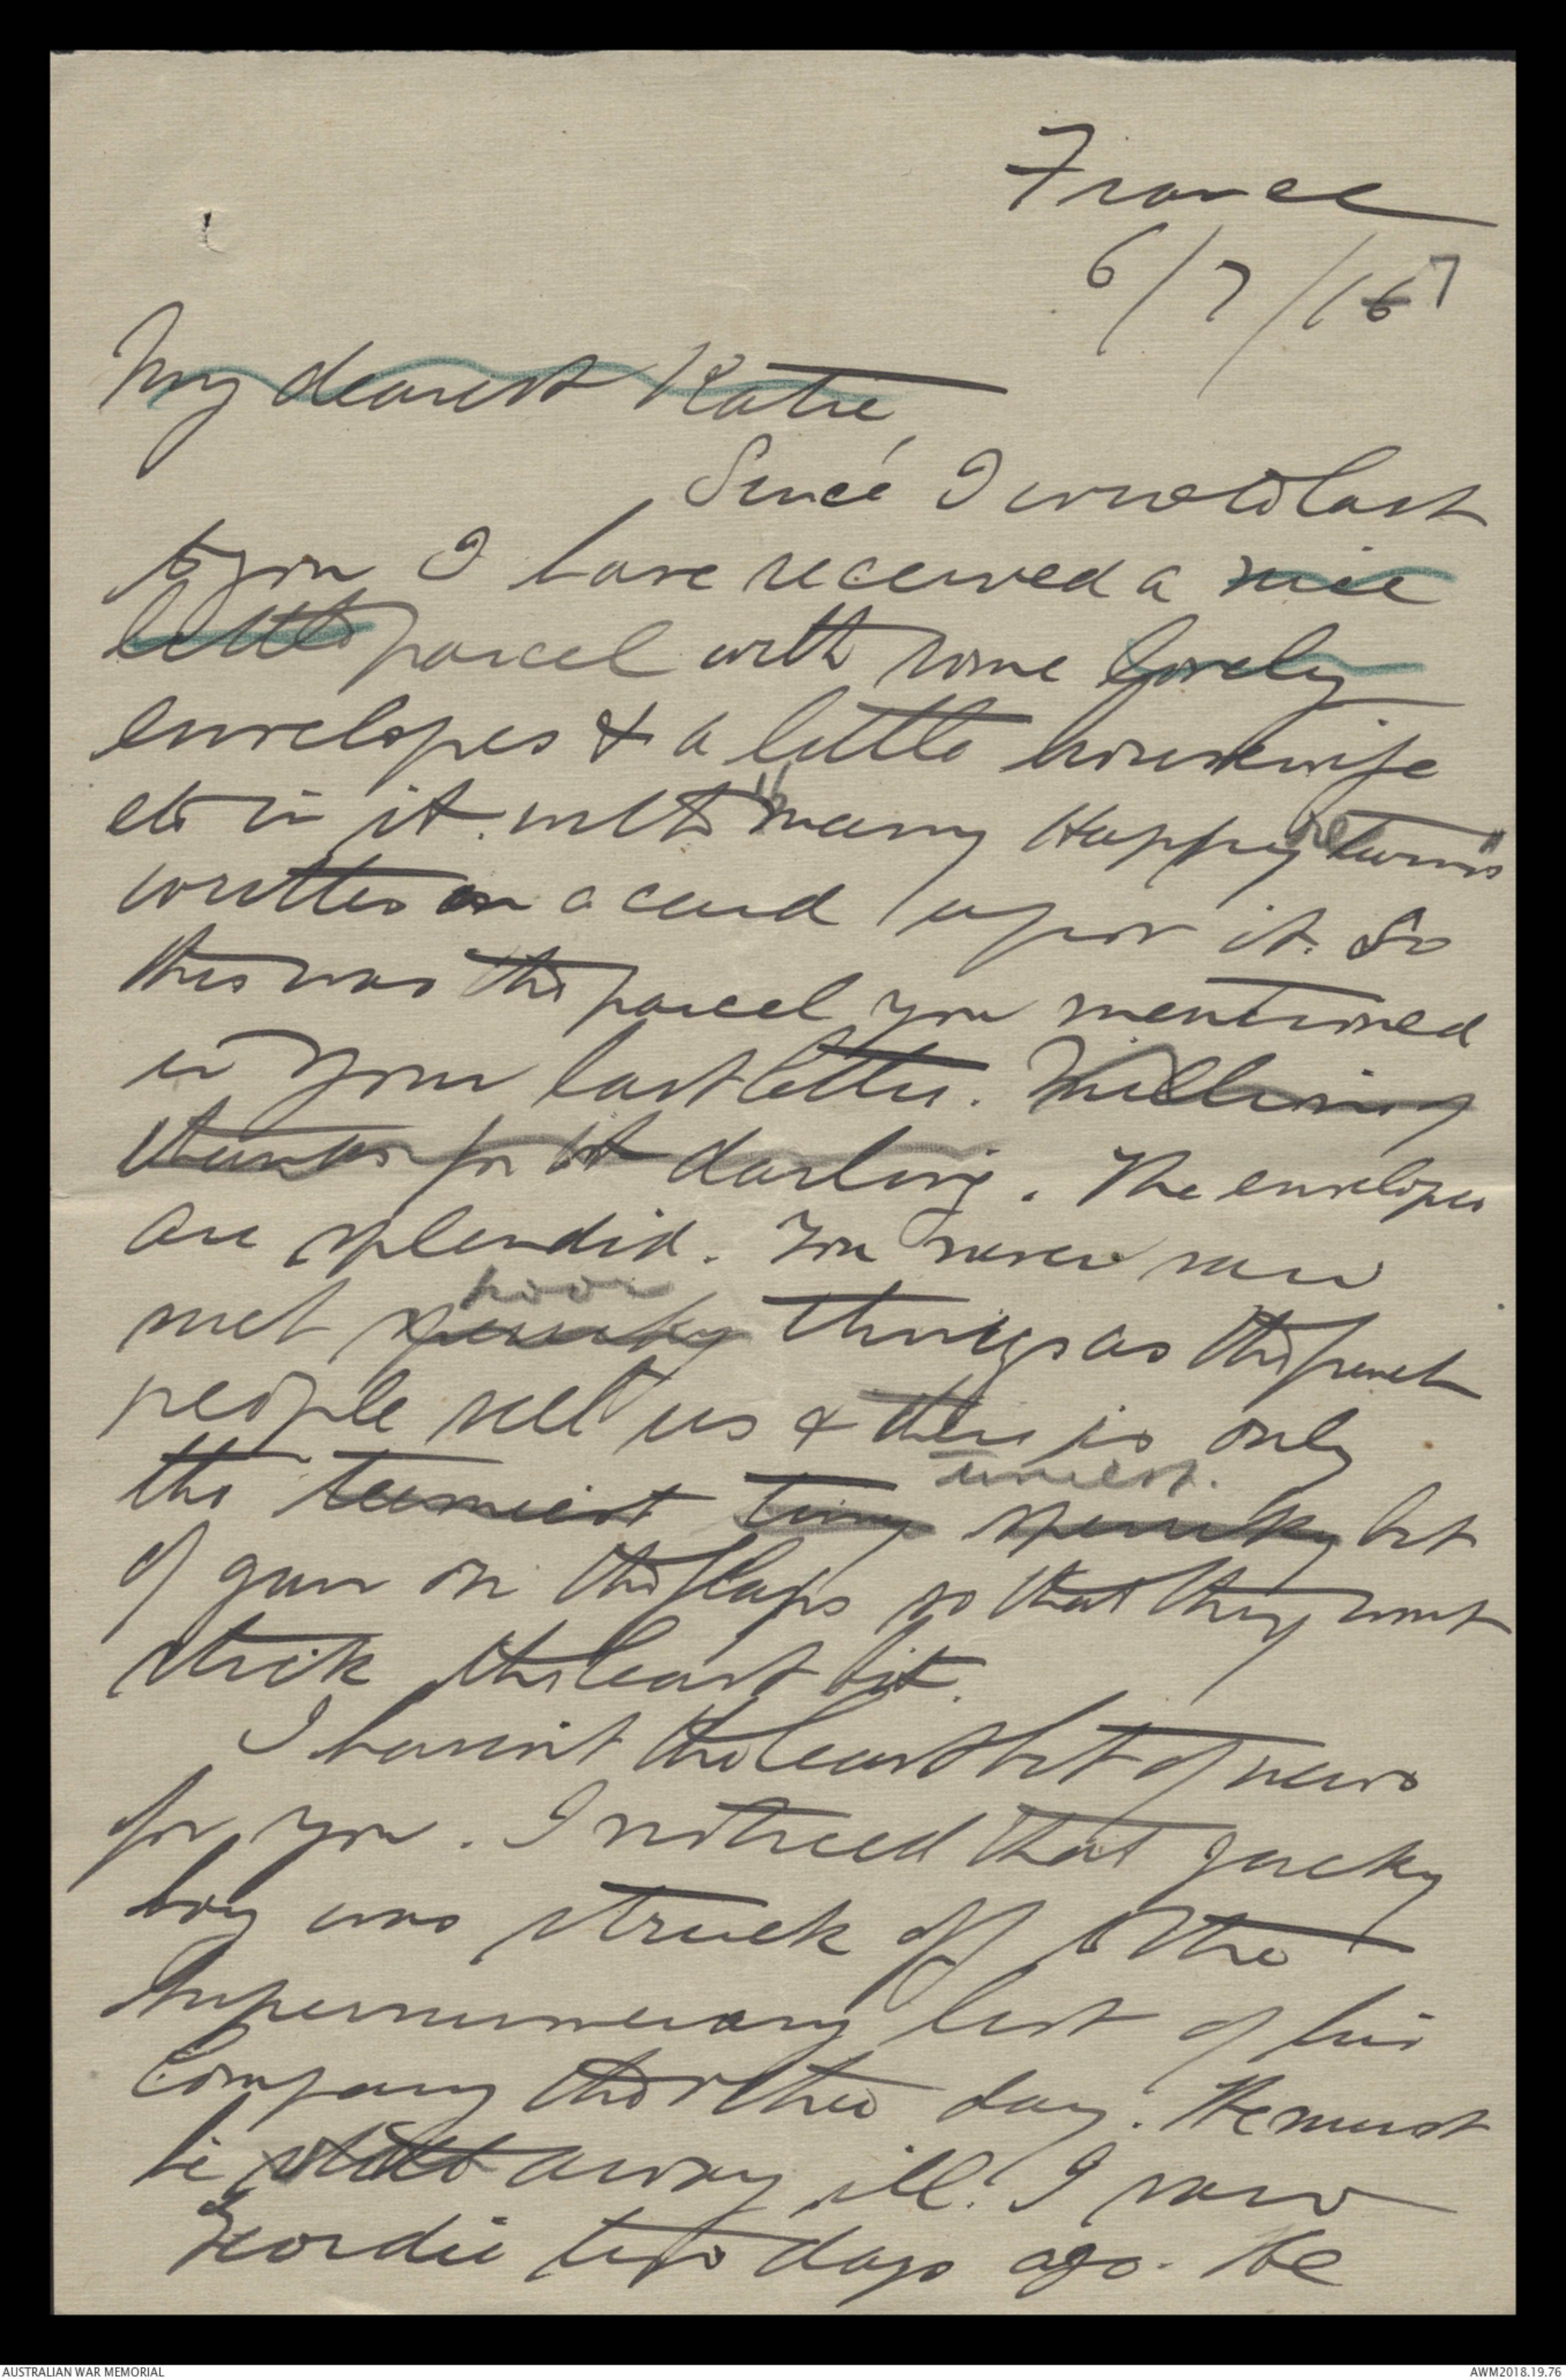 France
6/7/167
My dearest Katie,
Since I wrote last
to you I have received a nice
little parcel with some lovely
envelopes & a little housewife
etc in it with "many Happy returns"
written on a card upon it. So
this was the parcel you mentioned
in your last letter. Millions of
thanks for it darling. The envelopes
are splendid. You never saw
poor
such spunky things as the french
people sell us & there is only
tiniest.
the teeniest tiny spunky bit
of gum on the flaps so that they wont
stick the least bit.
I havent the least bit of news
for you. I noticed that Jacky
boy was struck off to the
Supernumerary list of his
Company the other day. He must
be still away ill. I saw
Geordie two days ago. He
AUSTRALIAN WAR MEMORIAL
AWM2018.19.76